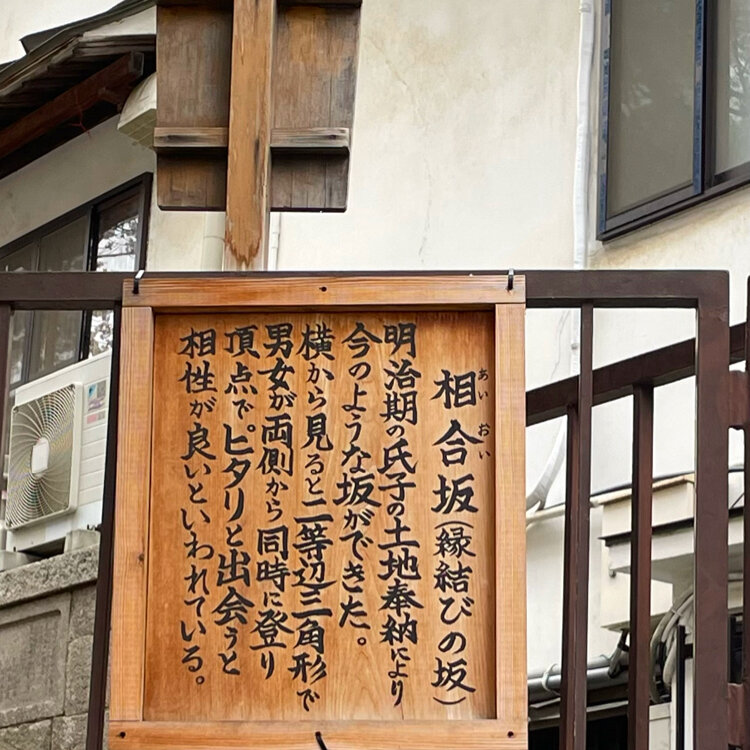 相合坂（縁結びの坂）
あいおい
明治期の氏子の土地奉納により
今のような坂ができた。
横から見ると二等辺三角形で
男女が両側から同時に登り
頂点でピタリと出会うと
相性が良いといわれている。